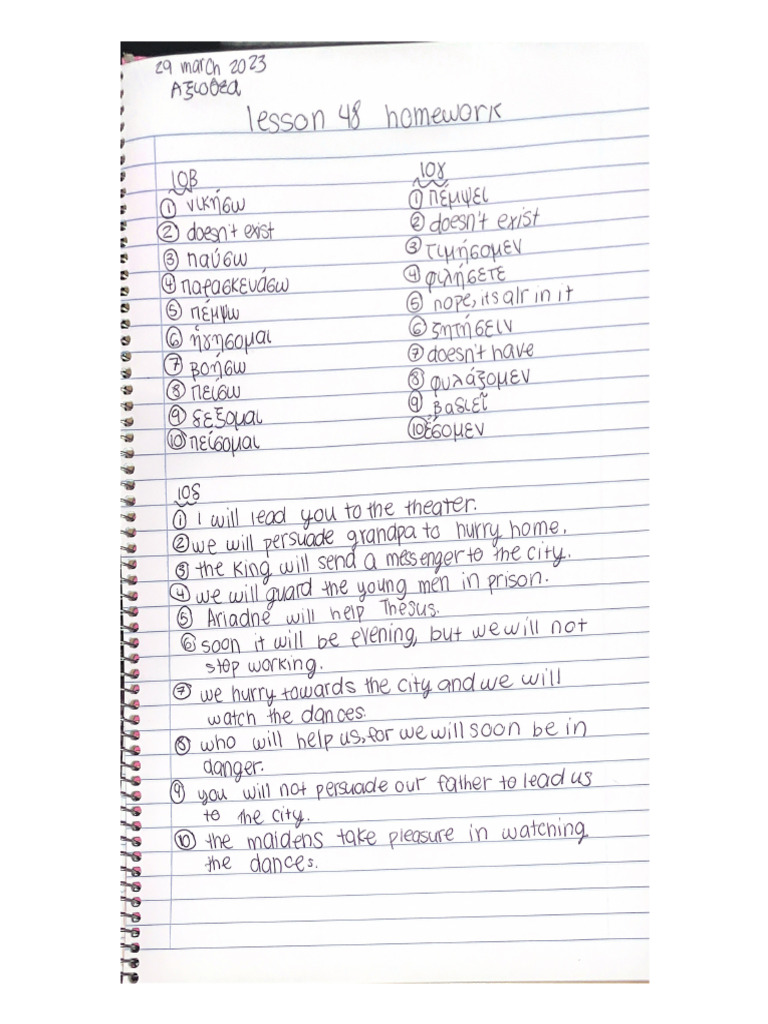 29 march 2023
Αξιοθεα
lesson 48 homework
10β
① νικήσω
② doesn't exist
③ παύσω
④ παρασκευάσω
⑤ πέμψω
⑥ ἡγησομαι
⑦ βοήσω
⑧ πείσω
⑨ δεξομαι
⑩ πείσομαι
10γ
① πέμψει
② doesn't exist
③ τιμήσομεν
④ φιλήσετε
⑤ nope, its alr in it
⑥ ζητήσειν
⑦ doesn't have
⑧ φυλάξομεν
⑨ βαδιεῖ
⑩ ἔσομεν
10δ
① I will lead you to the theater.
② we will persuade grandpa to hurry home.
③ the king will send a messenger to the city.
④ we will guard the young men in prison.
⑤ Ariadne will help Thesus.
⑥ soon it will be evening, but we will not
stop working.
⑦ we hurry towards the city and we will
watch the dances.
⑧ who will help us, for we will soon be in
danger.
⑨ you will not persuade our father to lead us
to the city.
⑩ the maidens take pleasure in watching
the dances.